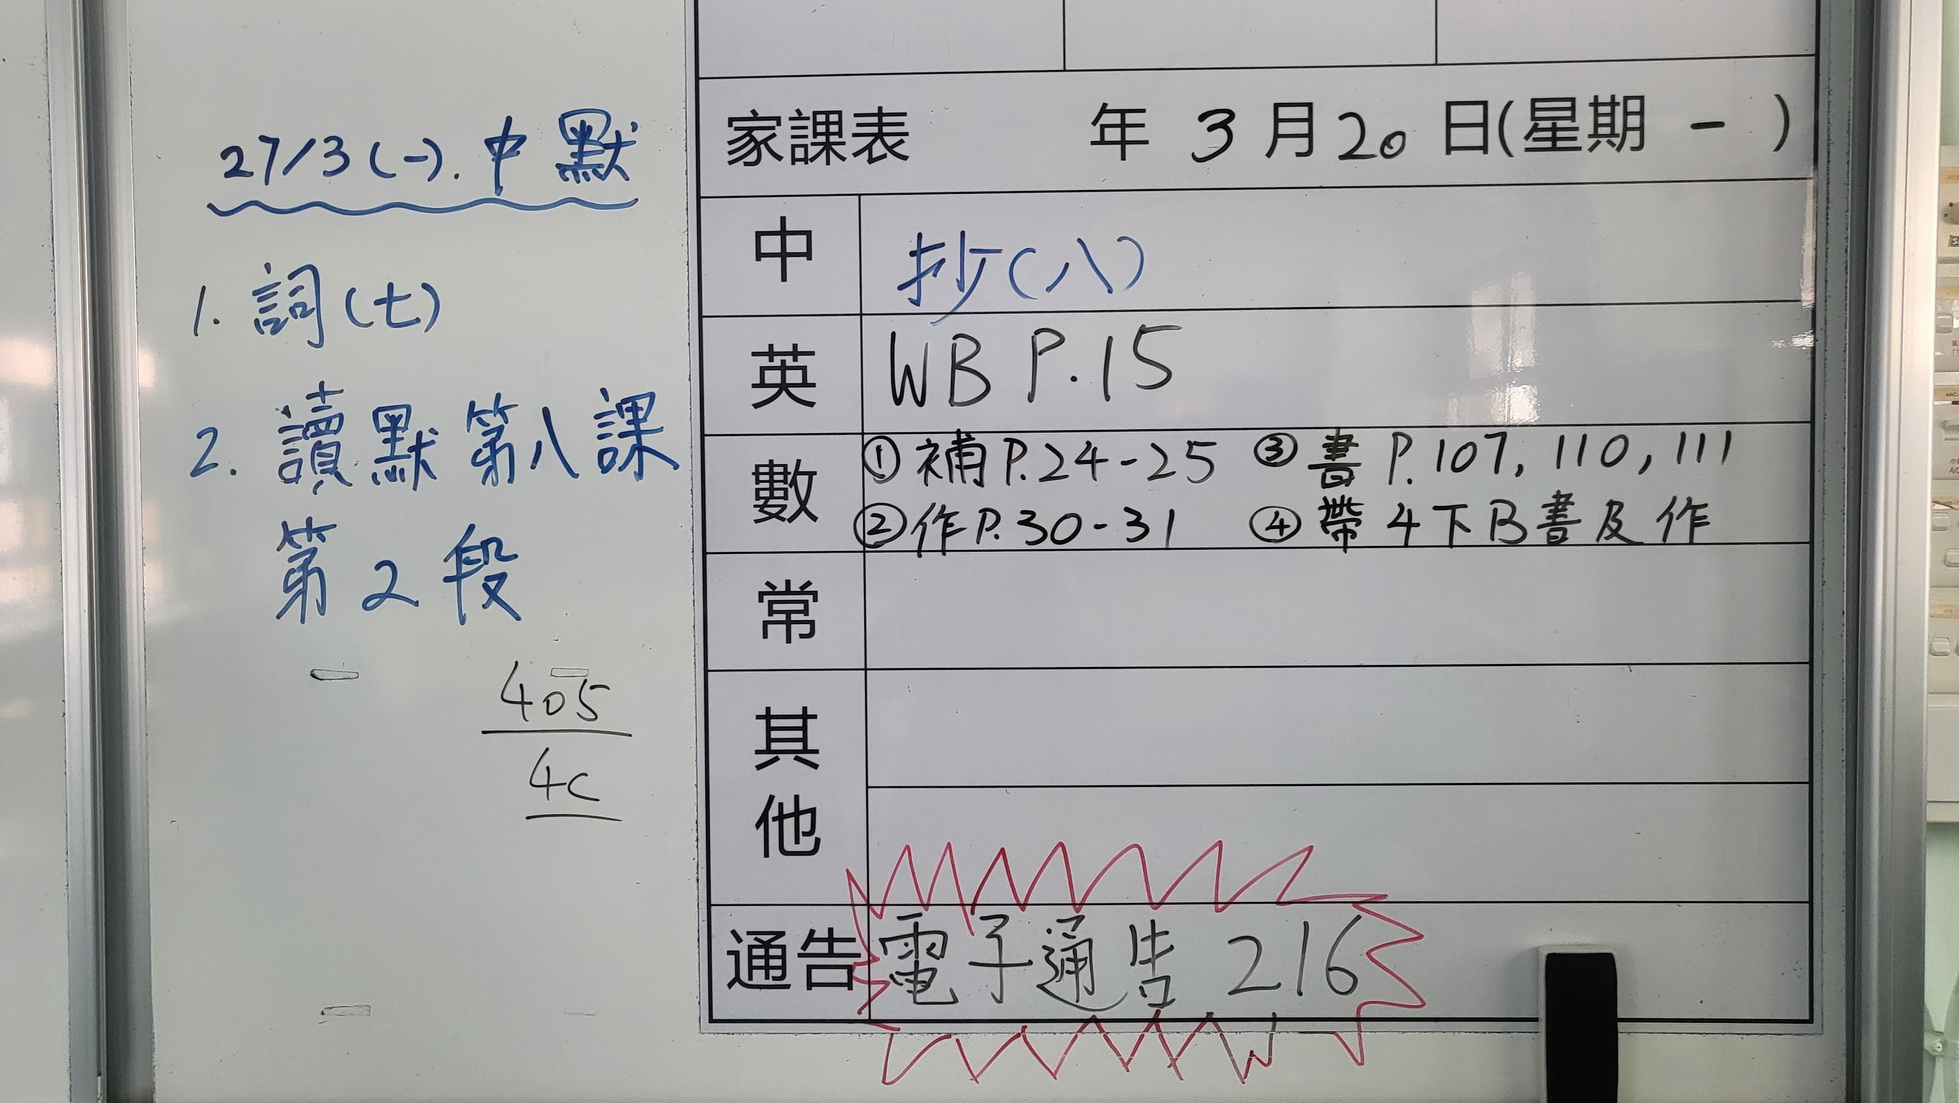 27/3(一). 中默
1. 詞(七)
2. 讀默第八課
第2段
405
4C
家課表 年 3 月 20 日(星期 一 )
中 抄(八)
英 WB P.15
數 ①補P.24-25 ③書 P.107, 110, 111
②作P.30-31 ④帶 4下B書及作
常
其他
通告 電子通告 216